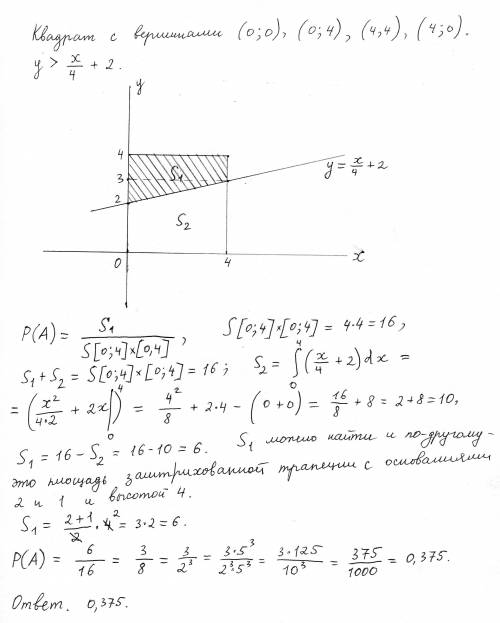 Квадрат с вершинами (0;0), (0;4), (4,4), (4;0).
y > x/4 + 2.
y
4
3
2
S1
S2
y = x/4 + 2
0
4
x
P(A) = S1 / S[0;4]×[0,4] , S[0;4]×[0;4] = 4·4 = 16,
S1 + S2 = S[0;4]×[0;4] = 16; S2 = ∫₀⁴ (x/4 + 2) dx =
= (x²/4·2 + 2x)|₀⁴ = 4²/8 + 2·4 − (0+0) = 16/8 + 8 = 2+8 = 10,
S1 = 16 − S2 = 16 − 10 = 6. S1 можно найти и по-другому -
это площадь заштрихованной трапеции с основаниями
2 и 1 и высотой 4.
S1 = 2+1/2 · 4² = 3·2 = 6.
P(A) = 6/16 = 3/8 = 3/2³ = 3·5³/2³·5³ = 3·125/10³ = 375/1000 = 0,375.
Ответ. 0,375.